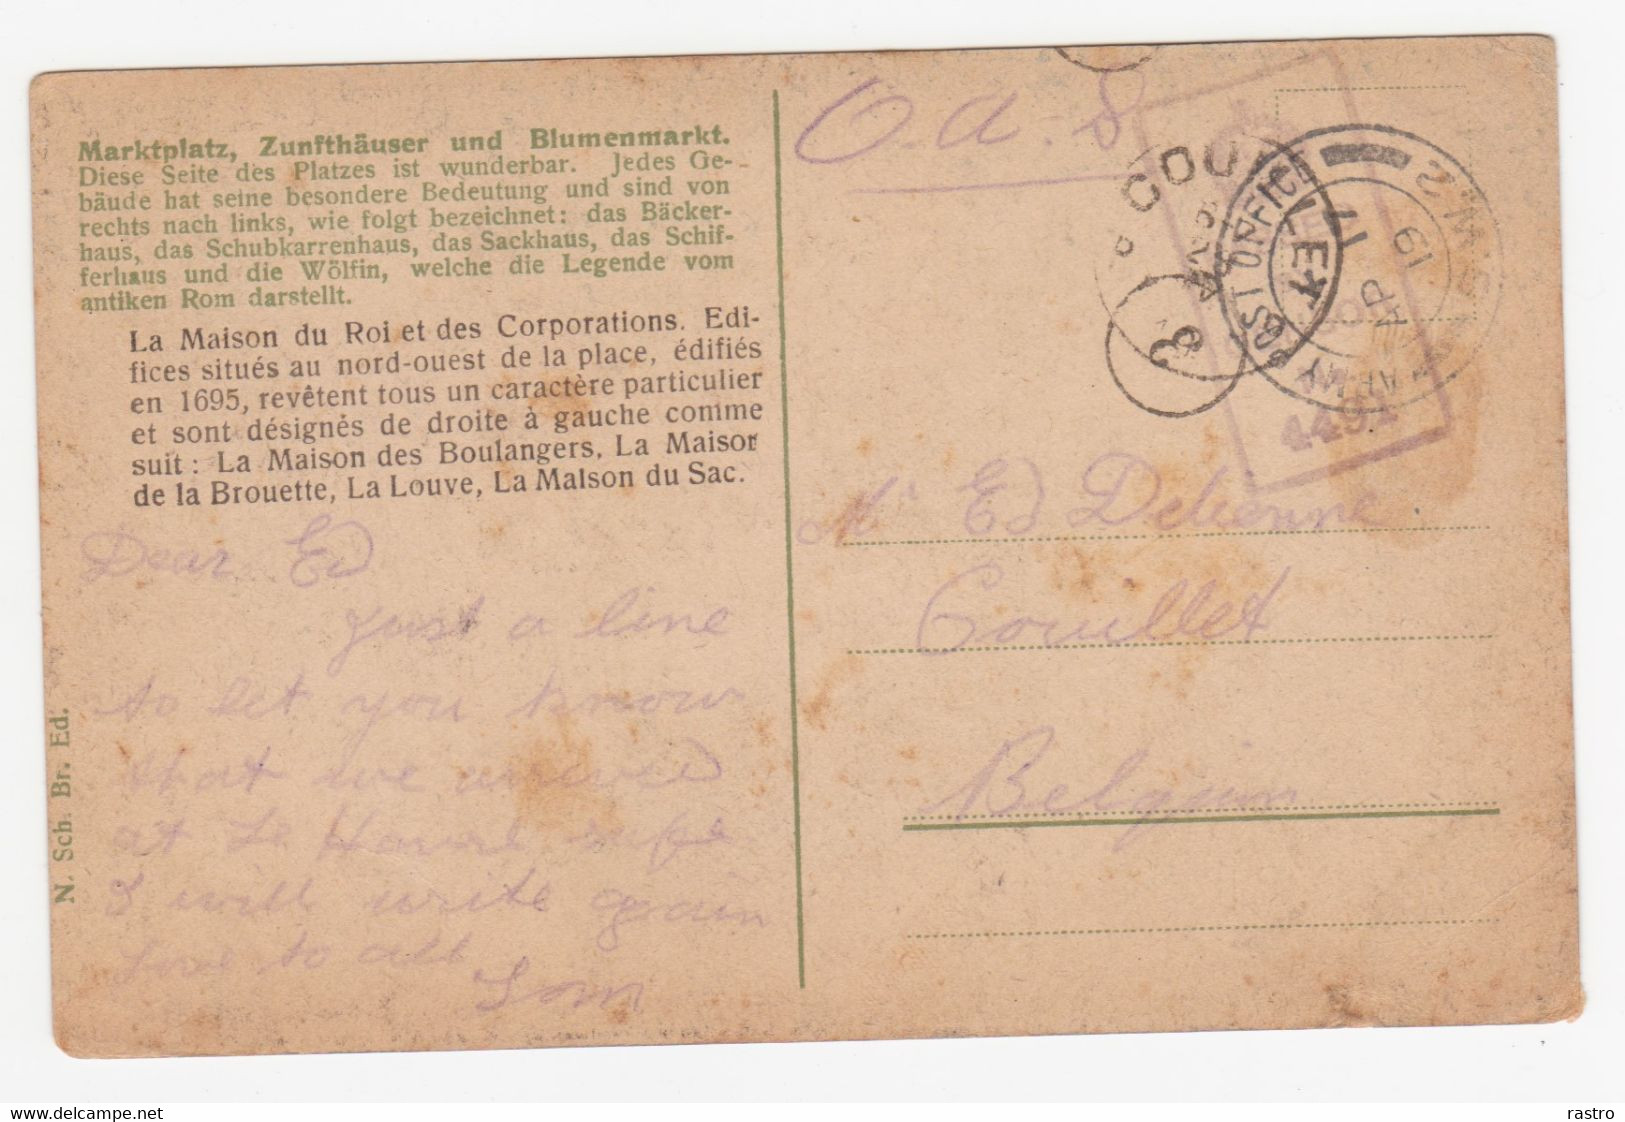 Marktplatz, Zunfthäuser und Blumenmarkt.
Diese Seite des Platzes ist wunderbar. Jedes Ge-
bäude hat seine besondere Bedeutung und sind von
rechts nach links, wie folgt bezeichnet: das Bäcker-
haus, das Schubkarrenhaus, das Sackhaus, das Schif-
ferhaus und die Wölfin, welche die Legende vom
antiken Rom darstellt.
La Maison du Roi et des Corporations. Edi-
fices situés au nord-ouest de la place, édifiés
en 1695, revêtent tous un caractère particulier
et sont désignés de droite à gauche comme
suit : La Maison des Boulangers, La Maison
de la Brouette, La Louve, La Maison du Sac.
Dear Ed
just a line
to let you know
that we arrived
at Le Havre safe
I will write again
Love to all
Tom
N. Sch. Br. Ed.
O. a. S
COUILLET
ARMY POST OFFICE
S.W.S
17
AP
19
3
4491
Mr Ed Delienne
Couillet
Belgium
delcampe.net
rastro